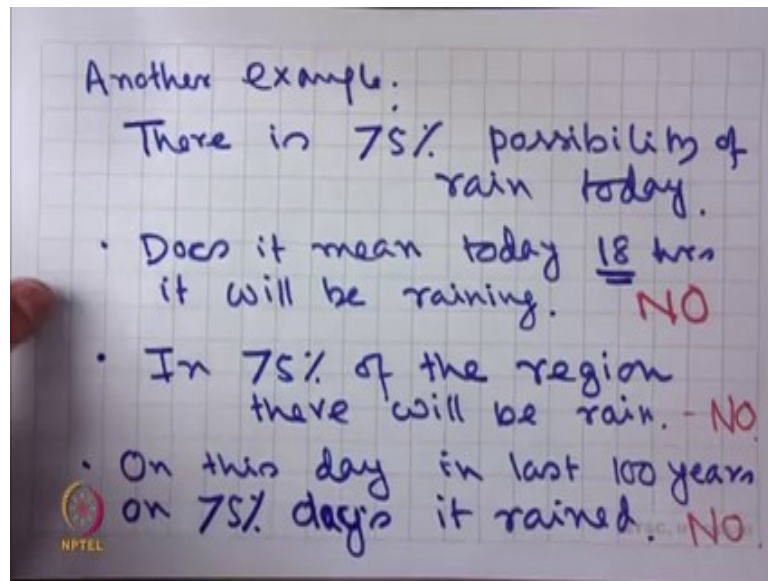 Another example:
There is 75% possibility of
rain today.
• Does it mean today 18 hrs
it will be raining. NO
• In 75% of the region
there will be rain. - NO
• On this day in last 100 years
on 75% days it rained. NO
NPTEL